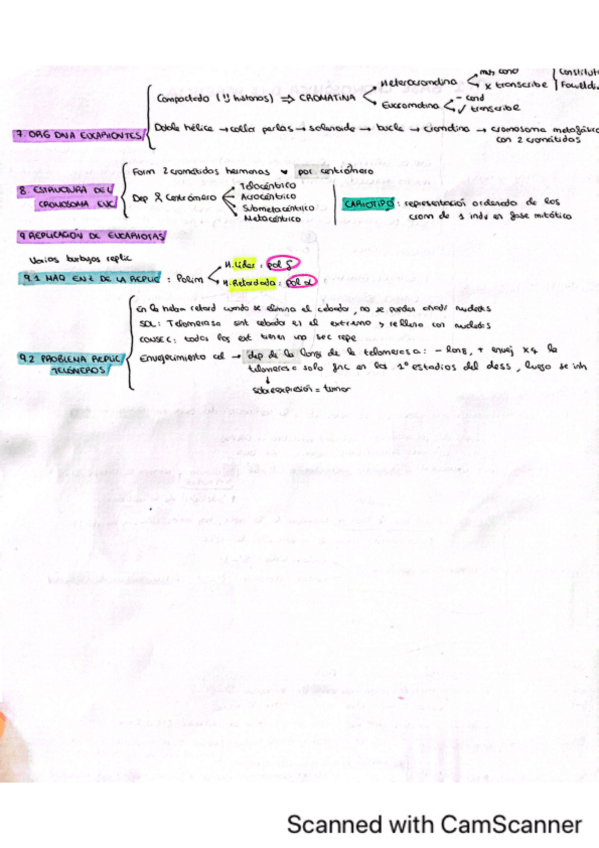 muy cond
Constitut
Heterocromatina
x transcribe
Facultda
Compactado (!! histonas) ⇒ CROMATINA
Eucromatina
- cond
✓ transcribe
7. ORG DNA EUCARIONTES
Doble hélice → collar perlas → solenoide → bucle → cromatina → cromosoma metafásico
con 2 cromátidas
Form 2 cromátidas hermanas por centrómero
8. ESTRUCTURA DEL
CROMOSOMA EUC
Dep centrómero
Telocéntrico
Acrocéntrico
Submetacéntrico
Metacéntrico
CARIOTIPO: representación ordenada de los
crom de 1 indv en fase mitótica
9 REPLICACIÓN DE EUCARIOTAS
Varias burbujas replic
9.1 MAQ EN L DE LA REPLIC : Polim
H. Líder : pol δ
H. Retardada : pol α
En la hebra retard cuando se elimina el cebador, no se pueden añadir nucleots
SOL: Telomerasa sint cebador en el extremo y rellena con nucleots
CONSEC: todos los ext tienen una sec repe
9.2 PROBLEMA REPLIC
TELÓMEROS
Envejecimiento cel → dep de la long de la telomerasa: - long, + envej xq la
telomerasa solo fnc en los 1º estadios del des, luego se inh
sobreexpresión = tumor
Scanned with CamScanner